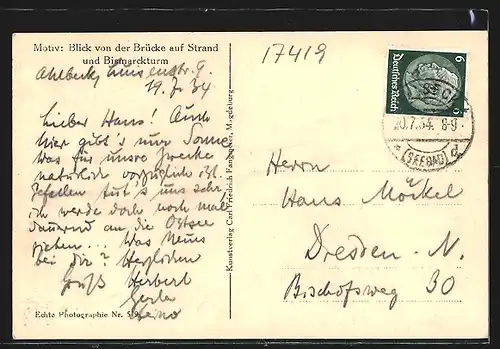 Motiv: Blick von der Brücke auf Strand
und Bismarckturm
Ahlbeck, Luisenstr. 9.
19.7.34
Lieber Hans! Auch
hier gibt's nur Sonne,
was für unsre Zwecke
natürlich vorzüglich ist.
Gefallen tut's uns sehr,
ich werde doch noch mal
dauernd an die Ostsee
ziehen... Was Neues
bei Dir? Herzlichen
Gruß Herbert
Gerda
Echte Photographie Nr.
Kunstverlag Carl Friedrich Fangmeier, Magdeburg
17419
Deutsches Reich
6
20.7.34. 8-9
(SEEBAD)
d
Herrn
Hans Möckel
Dresden-N.
Bischofsweg 30